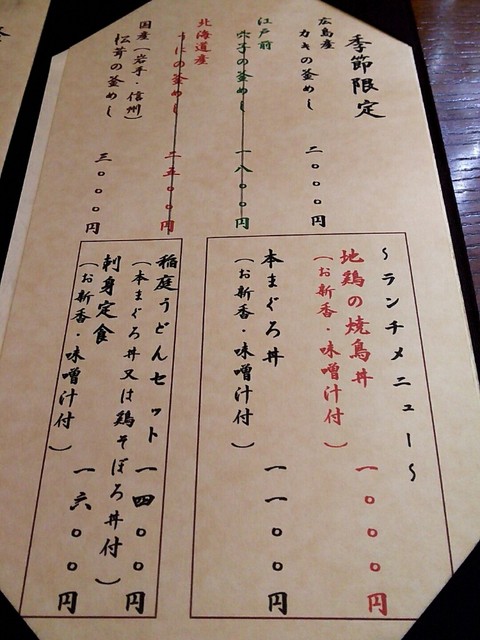 季節限定
広島産
カキの釜めし
二〇〇〇円
江戸前
穴子の釜めし
一八〇〇円
北海道産
うにの釜めし
二五〇〇円
国産（岩手・信州）
松茸の釜めし
三〇〇〇円
～ランチメニュー～
地鶏の焼鳥丼
（お新香・味噌汁付）
一〇〇〇円
本まぐろ丼
（お新香・味噌汁付）
一一〇〇円
稲庭うどんセット
一四〇〇円
（本まぐろ丼又は鶏そぼろ丼付）
刺身定食
（お新香・味噌汁付）
一六〇〇円